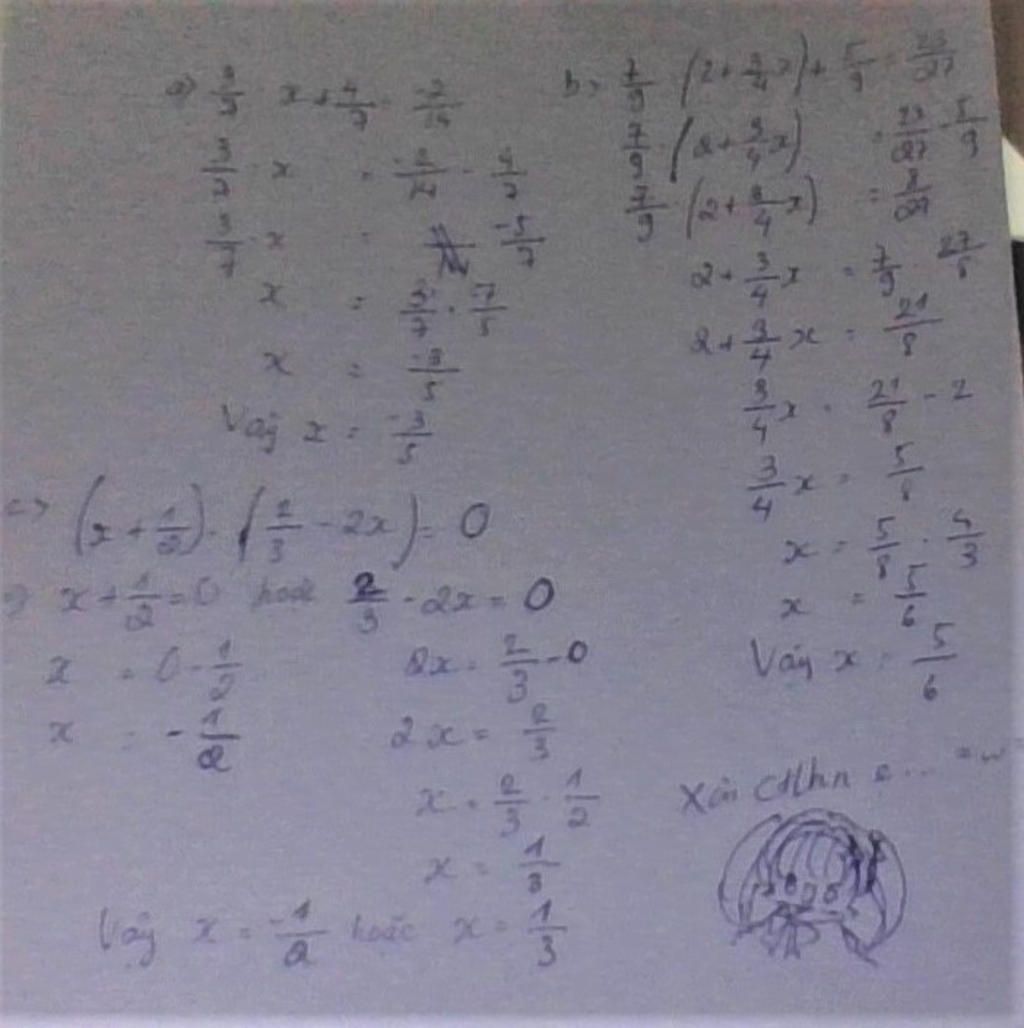 a) 3/7 · x + 4/7 = -2/14
3/7 · x = -2/14 - 4/7
3/7 · x = -5/7
x = 3/7 · -7/5
x = -3/5
Vậy x = -3/5
b, 7/9 · (2 + 3/4 x) + 5/9 = 23/27
7/9 · (2 + 3/4 x) = 23/27 - 5/9
7/9 · (2 + 3/4 x) = 8/27
2 + 3/4 x = 7/9 · 27/8
2 + 3/4 x = 21/8
3/4 x = 21/8 - 2
3/4 x = 5/8
x = 5/8 · 4/3
x = 5/6
Vậy x = 5/6
(x + 1/2) · (2/3 - 2x) = 0
=> x + 1/2 = 0 hoặc 2/3 - 2x = 0
x = 0 - 1/2 2x = 2/3 - 0
x = -1/2 2x = 2/3
x = 2/3 · 1/2
x = 1/3
Vậy x = -1/2 hoặc x = 1/3
Xin ctlhn